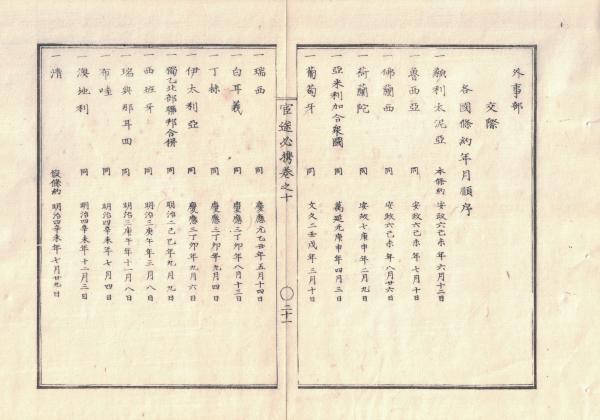 外事部
交際
各國條約年月順序
一 貌利太泥亞 本條約 安政六己未年六月十二日
一 魯西亞 同 安政六己未年七月十日
一 佛蘭西 同 安政六己未年八月廿六日
一 荷蘭陀 同 安政七庚申年二月九日
一 亞米利加合衆國 同 萬延元庚申年四月三日
一 葡萄牙 同 文久二壬戌年三月十日
官途必携卷之十
二十一
一 瑞西 同 慶應元乙丑年五月十四日
一 白耳義 同 慶應三丁卯年八月十三日
一 伊太利亞 同 慶應三丁卯年九月六日
一 丁抹 同 慶應三丁卯年九月四日
一 獨乙北部聯邦合併 同 明治二己巳年九月九日
一 西班牙 同 明治三庚午年三月八日
一 瑞典那耳回 同 明治三庚午年十一月八日
一 布哇 同 明治四辛未年七月四日
一 澳地利 同 明治四辛未年十二月三日
一 清 假條約 明治四辛未年七月廿九日